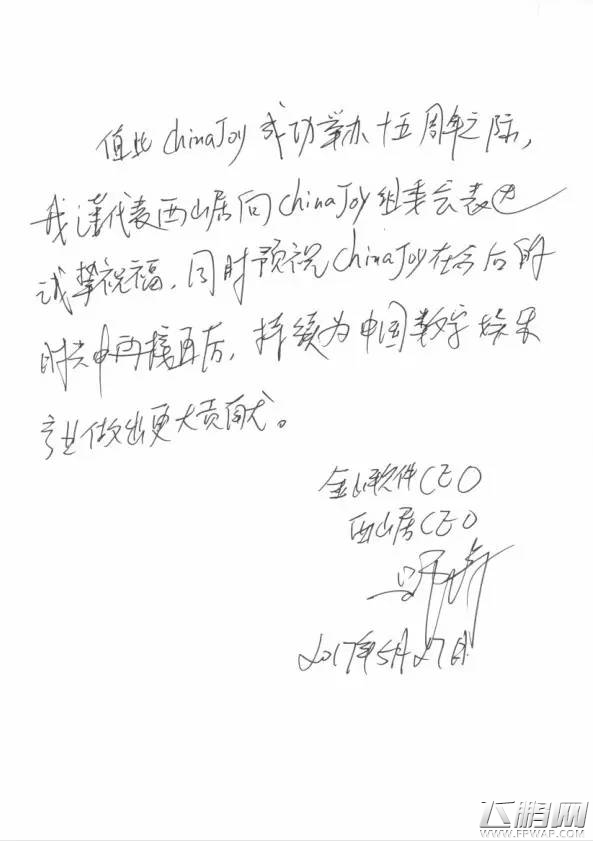 值此ChinaJoy成功举办十五周年之际,
我谨代表西山居向ChinaJoy组委会表达
诚挚祝福,同时预祝ChinaJoy在今后的
时光中再接再厉,持续为中国数字娱乐
产业做出更大贡献。
金山软件CEO
西山居CEO
2017年5月27日
飞鹏网
WWW.FPWAP.COM